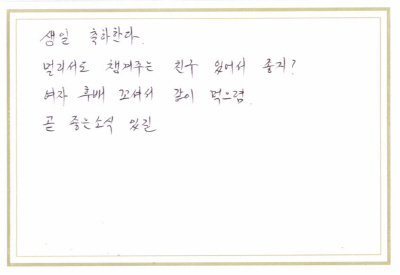 생일 축하한다.
멀리서도 챙겨주는 친구 있어서 좋지?
여자 후배 꼬셔서 같이 먹으렴.
곧 좋은소식 있길